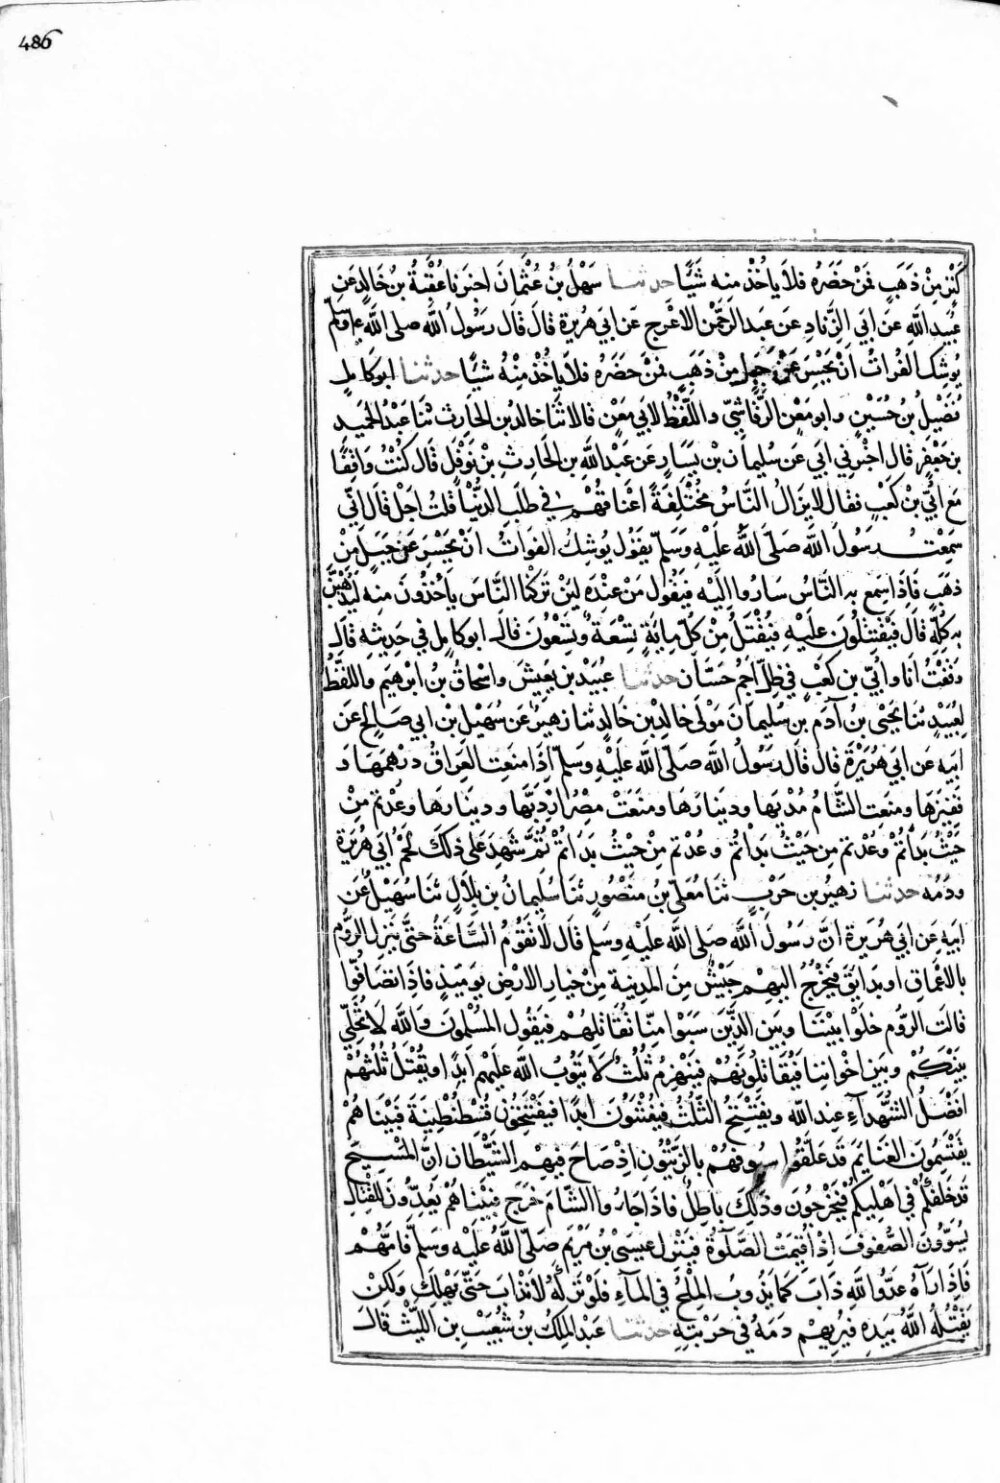 486
كَنْزٍ مِنْ ذَهَبٍ فَمَنْ حَضَرَهُ فلَا يَأخُذْ منه شَيًا حدثنا سَهْلُ بْنُ عُثْمَانَ اخبرنا عُقْبَةُ بْنُ خَالِدٍ عَنِ
عُبَيْدِ اللَّهِ عَنْ ابِي الزِّنَادِ عَنْ عَبْدِ الرَّحْمٰنِ الاعْرَجِ عَنْ ابِي هُرَيْرَة قَالَ قَالَ رَسُولُ اللَّهِ صلى اللَّه عليه وسلم
يُوشِكُ الفُراتُ انْ يَحْسِرَ عَنْ جَبَلٍ مِنْ ذَهَبٍ فَمَنْ حَضَرَهُ فلَا يَأخُذْ مِنْهُ شَيًا حدثنا ابوكَامِلٍ
فُضَيْلُ بنُ حُسَيْنٍ وابو مَعْنٍ الرَّقَاشِيّ واللَّفْظُ لابي مَعْنٍ قالا ثَنَا خالدُ بن الحَارِث ثَنا عَبْدُ الحَمِيد
بن جَعْفَرٍ قال اخبرني ابي عَن سُلَيمانَ بْن يَسَارٍ عَن عَبْدِ اللَّهِ بن الحَارِثِ بْن نَوْفَلٍ قَالَ كُنْتُ وَاقِفًا
مَعَ ابُيِّ بْن كَعْبٍ فقال لايَزَالُ النَّاسُ مُخْتَلِفَةً اعْنَاقُهُمْ في طَلَبِ الدنْيَا قلتُ اجَلْ قَالَ انّي
سَمِعْتُ رَسُولَ اللَّهِ صَلَّى اللَّهُ عَلَيْهِ وَسَلَّم يَقُول يُوشِكُ الفراتُ انْ يَحْسِرَ عَنْ جَبَلٍ مِنْ
ذهَبٍ فَإذَا سَمِعَ بهِ النَّاسُ سَارُوا إلَيْهِ فَيَقُولُ مَنْ عِنْدَهُ لَئِنْ تَرَكْنَا النَّاسَ يَأخُذُونَ منه لَيُذْهَبَنَّ
بهِ كُلِّهِ قَالَ فَيَقْتَتِلُونَ عَلَيْهِ فَيُقْتَلُ مِنْ كُلِّ مِايَةٍ تِسْعَةٌ وَتِسْعُونَ قَالَ ابوكَامِل في حَدِيثِه قَالَ
وَقَفْتُ انَا وابُيّ بن كَعْبٍ في ظِلِّ اجُمِ حَسَّان حدثنا عُبَيْدُ بن يَعِيشَ واسْحَاقُ بن ابْرهيمَ واللَّفْظُ
لِعُبَيْدٍ ثنا يَحْيَى بن آدَمَ بن سُلَيمانَ مَوْلى خالِدِ بْنِ خَالِدٍ ثنا زهيرٌ عَنْ سُهَيْلِ بْن ابي صَالِحٍ عَنْ
ابيهِ عَن ابي هُرَيْرَةَ قَال قَالَ رَسُولُ اللَّه صَلّى اللَّه عَلَيْهِ وسَلّم إذَا مَنَعَتِ العِرَاقُ دِرْهَمَهَا وَ
قَفِيزَهَا ومَنَعَتِ الشَّامُ مُدْيَها ودينَارَهَا ومنَعَتْ مِصْرُ ارْدَبَّها ودينَارهَا وعُدْتم مِنْ
حَيْثُ بَدَأتُمْ وعُدْتم مِن حَيْثُ بَدَأتُم وعُدْتم مِنْ حَيْثُ بَدَأتُمْ شَهِدَ عَلى ذلكَ لَحْمُ ابي هُرَيْرَة
ودَمُه حدثنا زهَيْرُ بن حَرْبٍ ثَنَا مُعَلَّى بْنُ مَنْصُورٍ ثَنَا سُلَيمانُ بن بِلَالٍ ثَنَا سُهَيْلٌ عَنْ
ابيهِ عَن ابي هُرَيْرَة انَّ رَسُولَ اللَّه صَلى اللَّه عَلَيهِ وسَلم قَال لَا تَقُومُ السَّاعَةُ حتَّى يَنْزِلَ الرُّوم
بالاعْمَاقِ او بدَابَقٍ فَيَخْرُجُ اليهِمْ جَيْشٌ مِن المَدِينَةِ مِنْ خيَارِ الارْضِ يومَيِذٍ فَاذَا تصَافُّوا
قَالَت الرُّوم خَلُّوا بَيْنَنَا وبَينَ الذَّينَ سَبَوْا مِنَّا نُقَاتِلهُمْ فيَقُول المُسْلمونَ لا وَاللَّهِ لَا نُخَلِّي
بَيْنَكُمْ وبَيْنَ اخْوَانِنا فَيُقَاتِلُونَهُمْ فَيَنْهَزِمُ ثُلُثٌ لَا يَتُوبُ اللَّهُ عَلَيْهِم ابَدًا ويُقْتَلُ ثُلُثُهُمْ
افْضَلُ الشُّهَدآءِ عِندَ اللَّه ويَفْتَتِحُ الثُّلُثُ لا يُفْتَنُونَ ابَدًا فَيَفْتَتِحُونَ قُسْطُنْطِينيَةَ فبَيْنَا هُمْ
يَقْتَسِمُونَ الغَنَايِمَ قَد عَلَّقُوا سُيُوفَهُمْ بالزَّيْتُونِ اِذْ صَاحَ فِيهِم الشَّيْطَانُ انَّ المَسِيحَ
قَد خَلَفَكُمْ في اهْلِيكُمْ فيَخْرُجُونَ وذَلِكَ بَاطِلٌ فاذَا جَاؤُوا الشَّامَ خَرَجَ فبَيْنَاهُمْ يُعِدُّونَ للقِتَالِ
يُسَوُّونَ الصُّفُوفَ اِذْ اُقِيمَتْ الصَّلَوةُ فيَنْزِلُ عيسَى بْنُ مَرْيَمَ صَلّى اللَّهُ عَلَيْهِ وسَلّم فَامَّهُمْ
فَاذَا رَآهُ عَدُوُّ اللَّهِ ذَابَ كَمَا يَذُوبُ المِلْحُ في المَآءِ فلَوْ تَرَكَهُ لَانْذَابَ حَتّى يَهْلِكَ ولَكِنْ
يَقْتُلُهُ اللَّهُ بيَدِهِ فَيُرِيهِمْ دَمَهُ في حَرْبَتِهِ حدثنا عَبْدُ المَلِكِ بن شُعَيْبِ بن اللَّيْث قَالَ